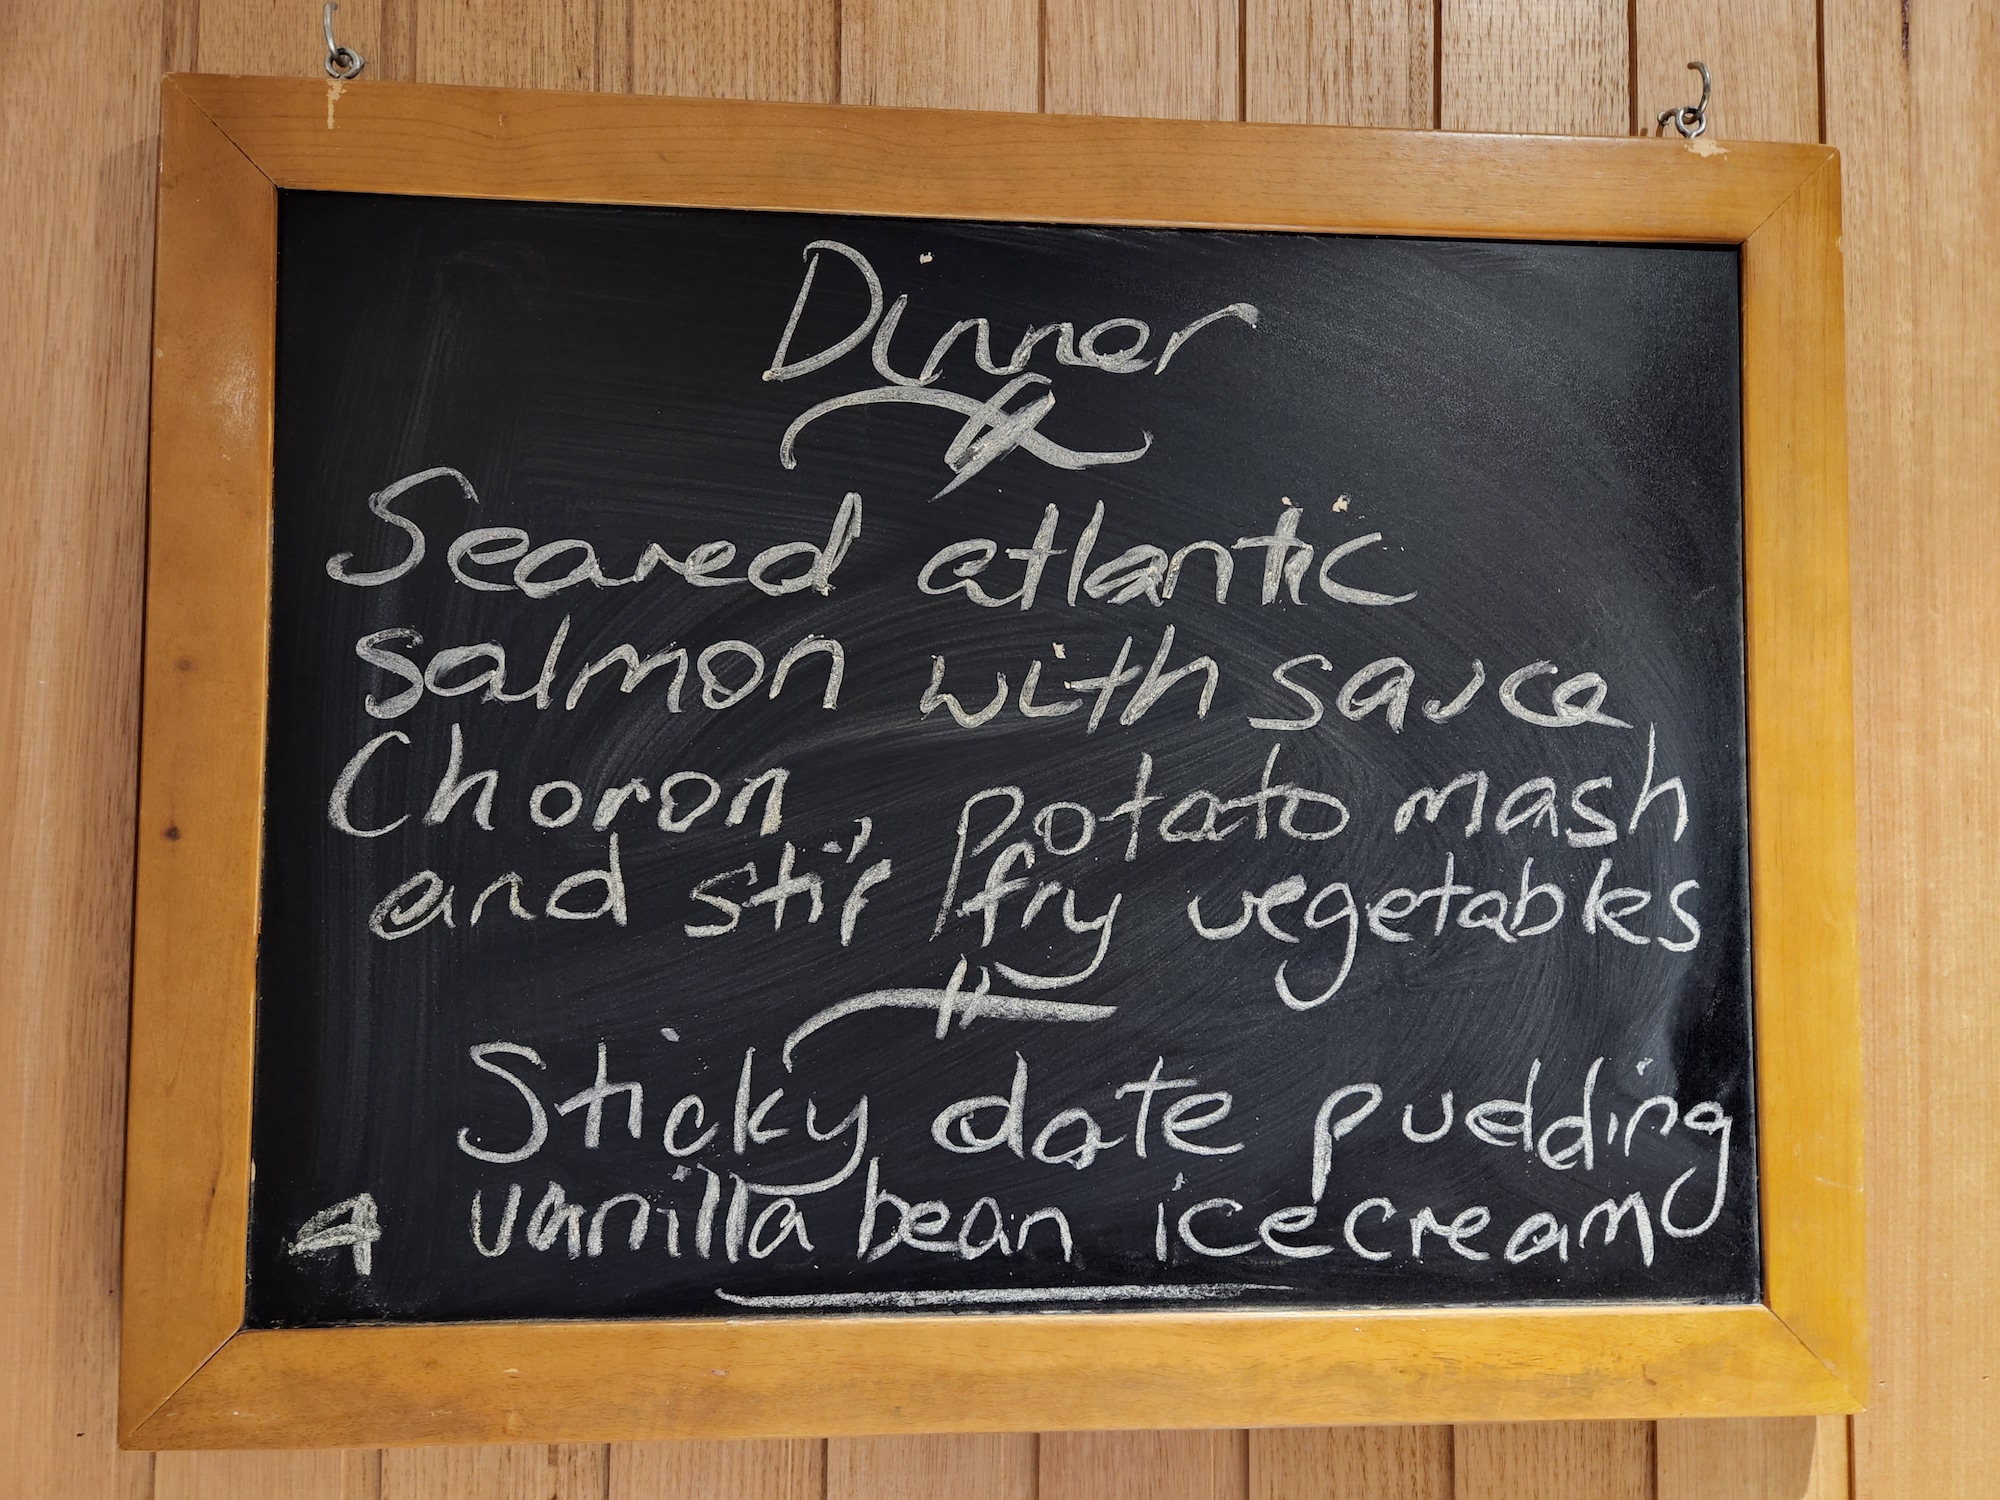 Dinner
Seared atlantic
salmon with sauce
Choron, potato mash
and stir fry vegetables
Sticky date pudding
vanilla bean icecream